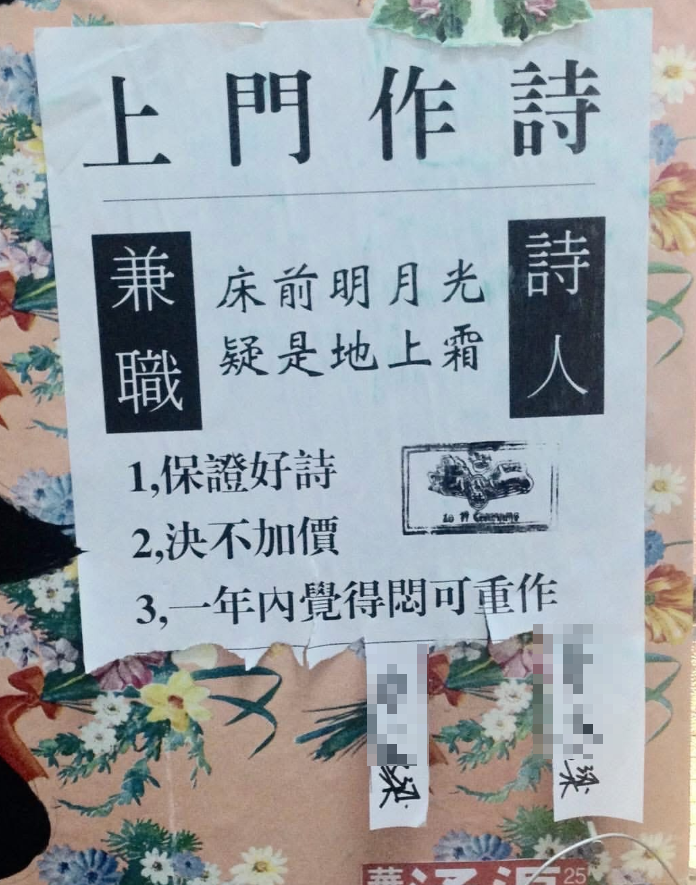 上門作詩
兼職
床前明月光
疑是地上霜
詩人
1,保證好詩
2,決不加價
3,一年內覺得悶可重作
梁
梁
25